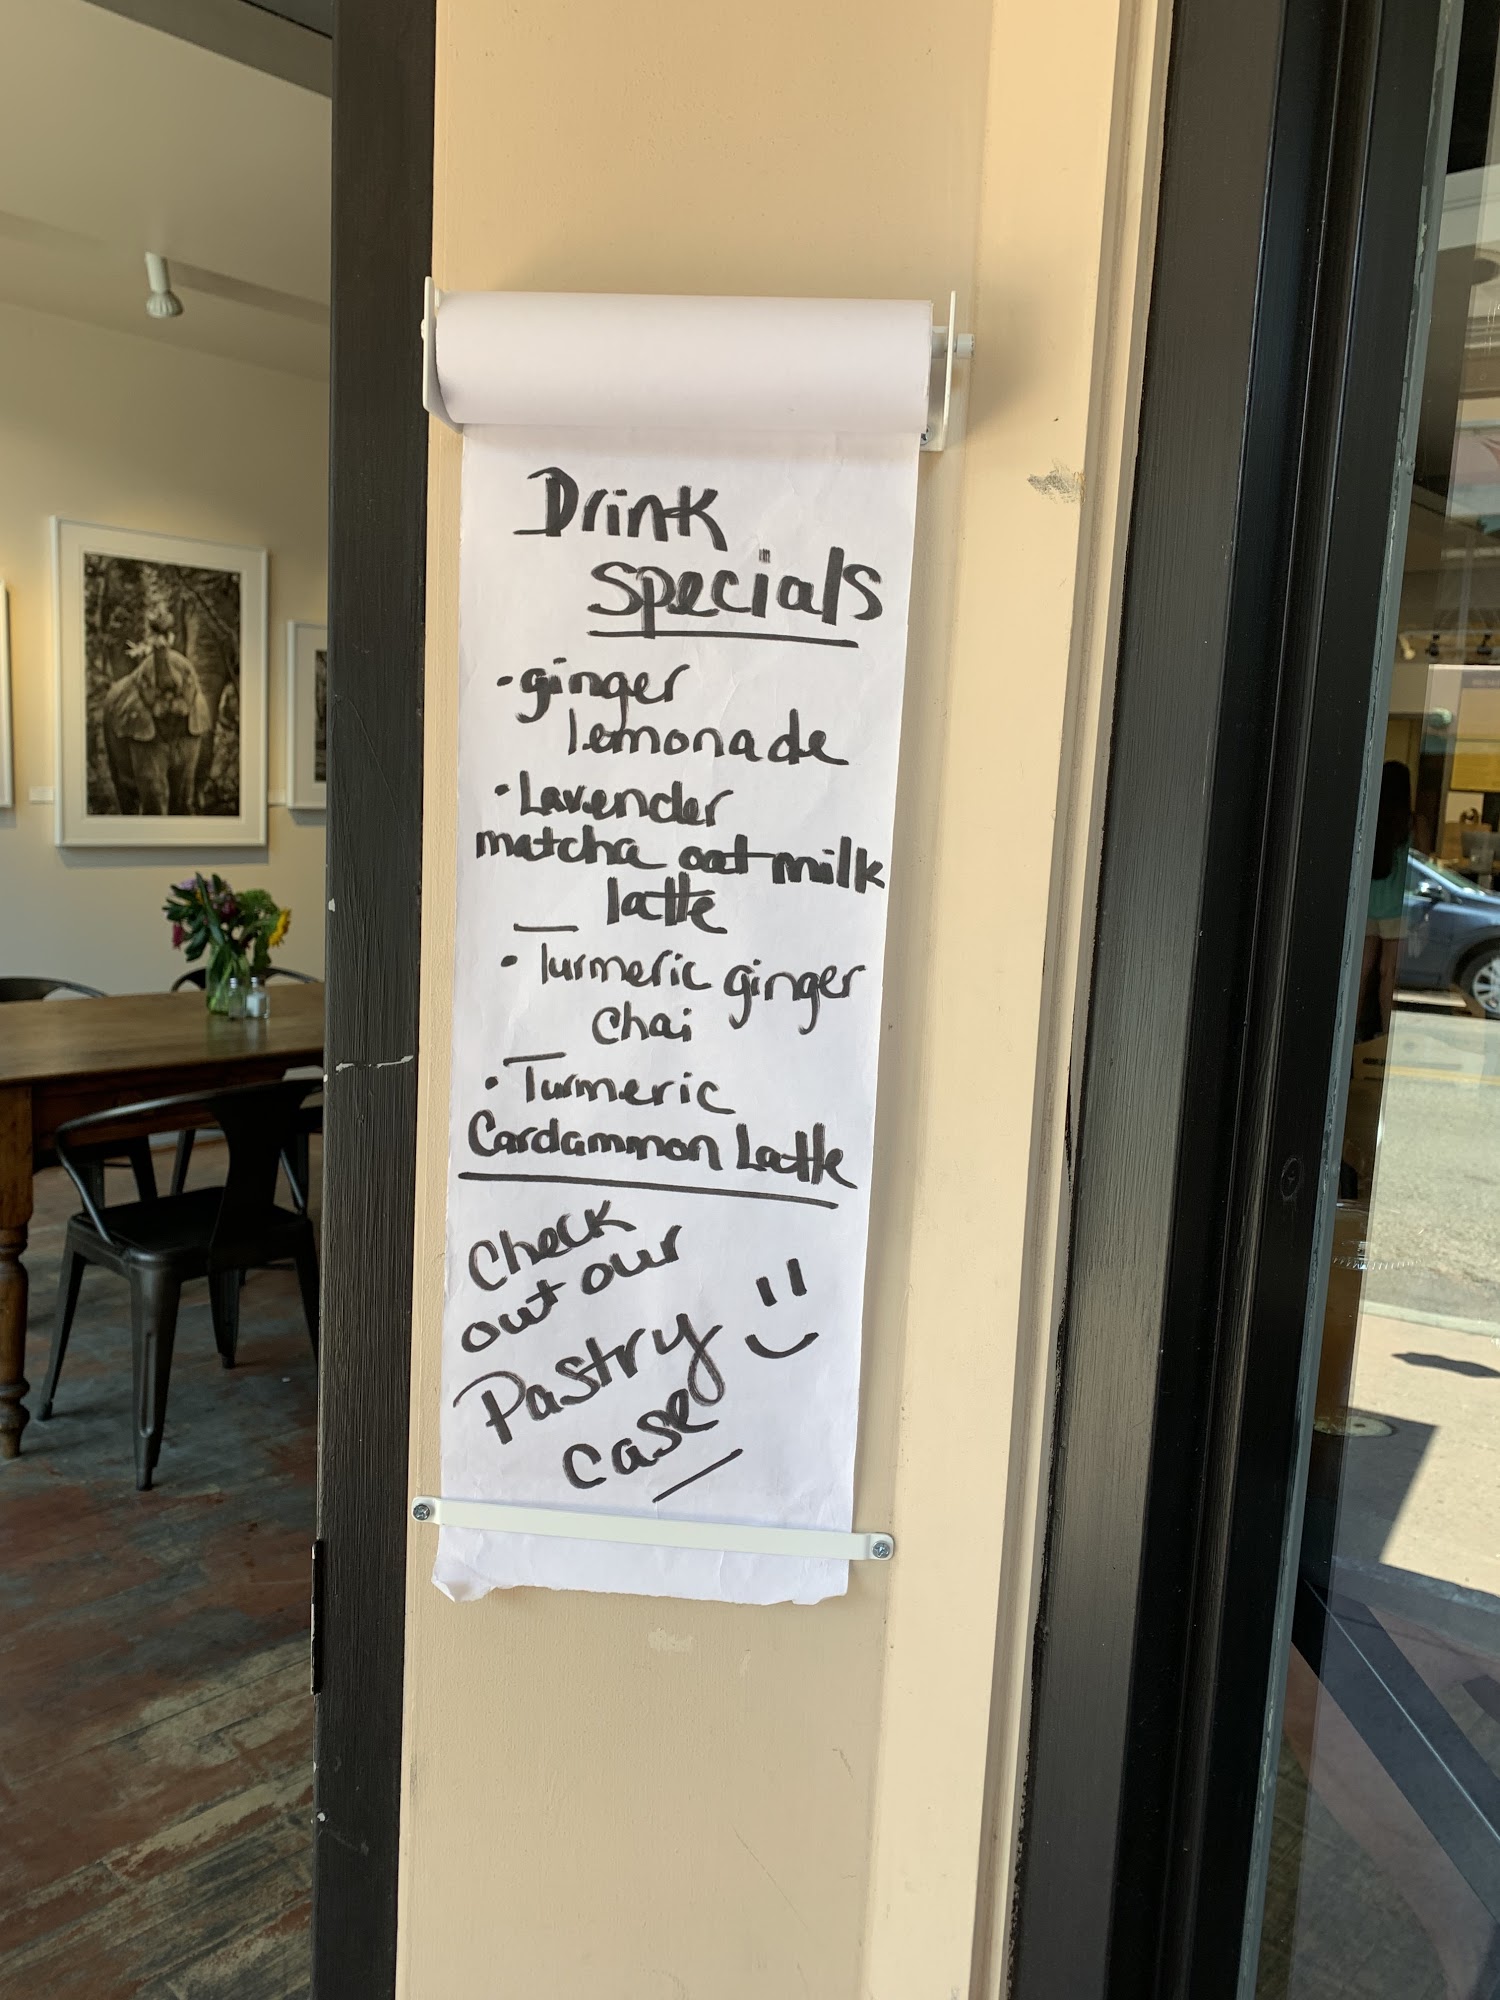 Drink
specials
•ginger
lemonade
•Lavender
matcha oat milk
latte
•Turmeric ginger
chai
•Turmeric
Cardammon Latte
Check
out our
Pastry
case